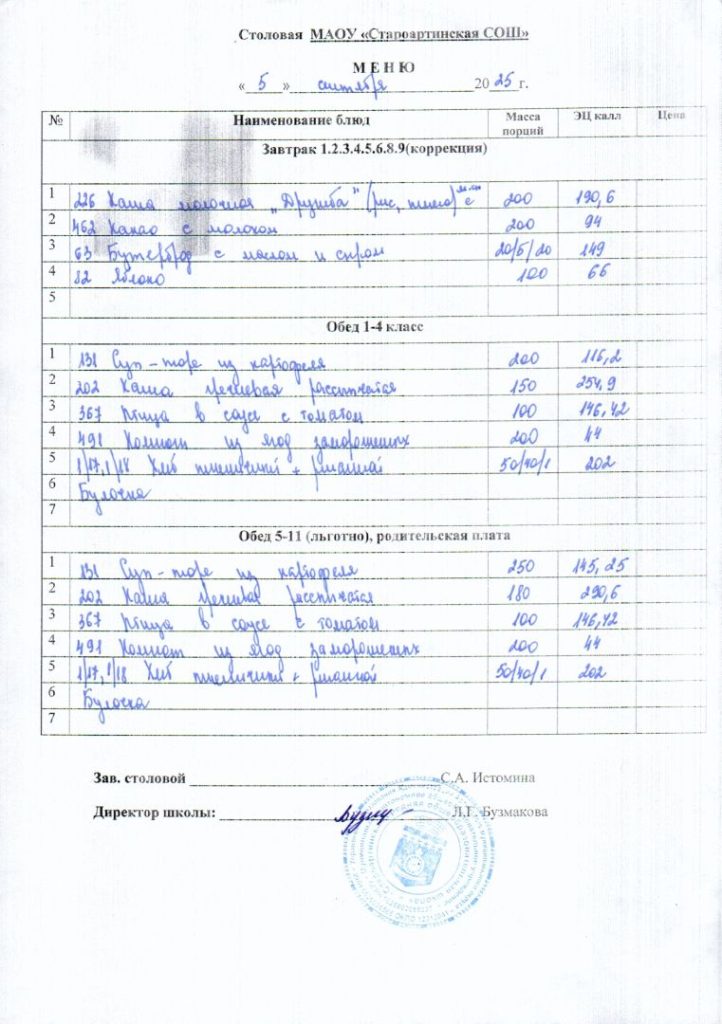 Столовая МАОУ «Староартинская СОШ»
М Е Н Ю
« 5 » сентября 2025 г.
№ Наименование блюд Масса порций ЭЦ калл Цена
Завтрак 1.2.3.4.5.6.8.9(коррекция)
1 226 Каша молочная "Дружба" (рис, пшено) с м.м 200 190,6
2 462 Какао с молоком 200 94
3 63 Бутерброд с маслом и сыром 20/5/20 149
4 82 Яблоко 100 66
5
Обед 1-4 класс
1 131 Суп-пюре из картофеля 200 116,2
2 202 Каша гречневая рассыпчатая 150 254,9
3 367 Птица в соусе с томатом 100 146,42
4 491 Компот из ягод замороженых 200 44
5 1/17, 1/18 Хлеб пшеничный + ржаной 50/40/1 202
6 Булочка
7
Обед 5-11 (льготно), родительская плата
1 131 Суп-пюре из картофеля 250 145,25
2 202 Каша гречневая рассыпчатая 180 290,6
3 367 Птица в соусе с томатом 100 146,42
4 491 Компот из ягод замороженых 200 44
5 1/17, 1/18 Хлеб пшеничный + ржаной 50/40/1 202
6 Булочка
7
Зав. столовой С.А. Истомина
Директор школы: Л.Г. Бузмакова